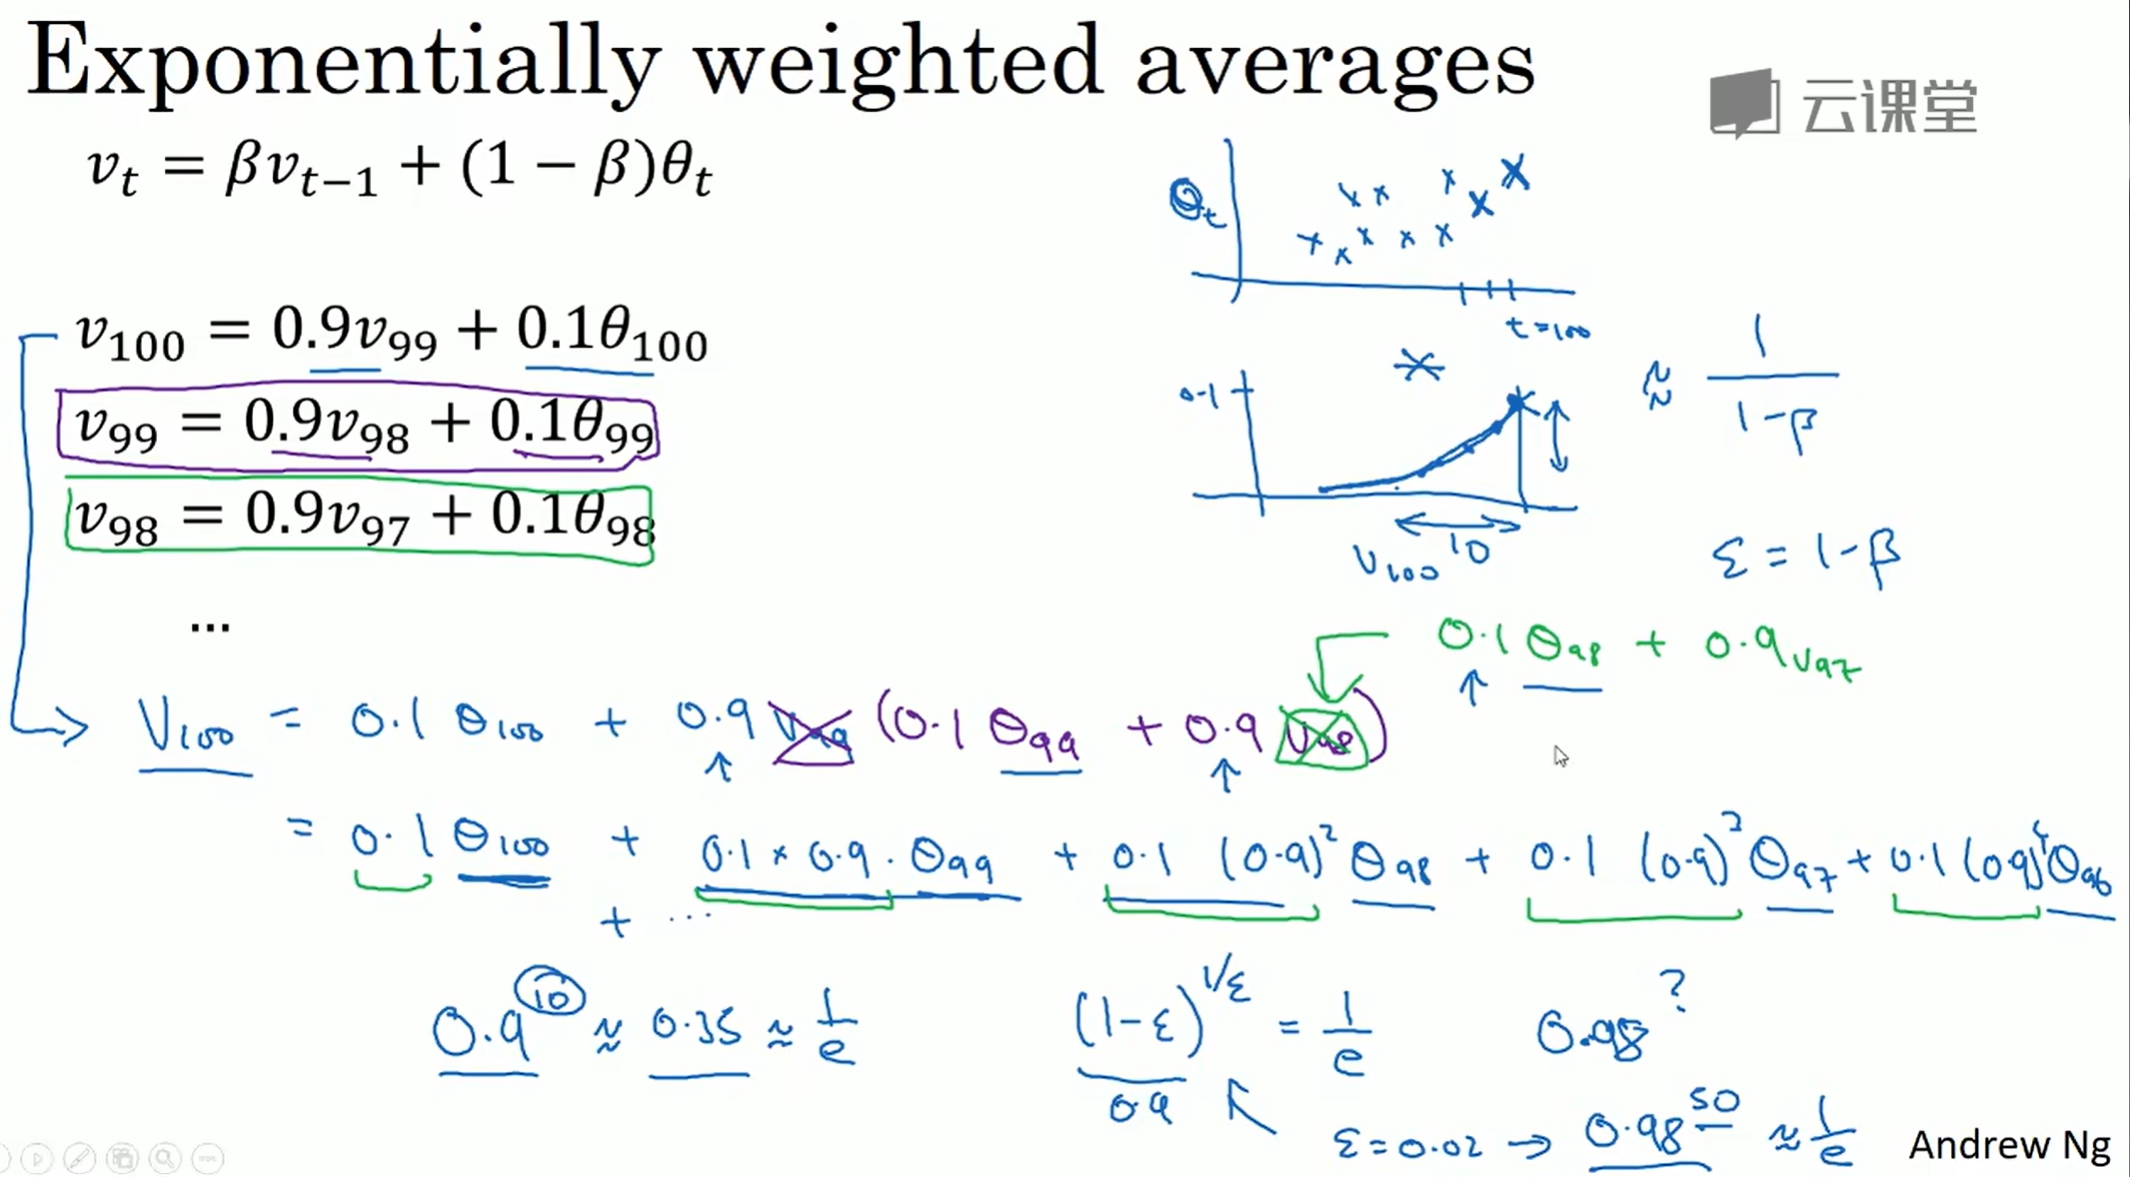 Exponentially weighted averages
云课堂
v_t = βv_{t−1} + (1 − β)θ_t
θ_t
t=100
v_100 = 0.9v_99 + 0.1θ_100
v_99 = 0.9v_98 + 0.1θ_99
v_98 = 0.9v_97 + 0.1θ_98
...
0.1
10
V_100
≈ 1/(1-β)
ε = 1-β
0.1 θ_98 + 0.9 v_97
V_100 = 0.1 θ_100 + 0.9 v_99 (0.1 θ_99 + 0.9 v_98)
= 0.1 θ_100 + 0.1 × 0.9 · θ_99 + 0.1 (0.9)^2 θ_98 + 0.1 (0.9)^3 θ_97 + 0.1 (0.9)^4 θ_96
+ ...
0.9^10 ≈ 0.35 ≈ 1/e
(1-ε)^{1/ε} = 1/e
0.9
0.98^?
ε = 0.02 → 0.98^50 ≈ 1/e
Andrew Ng